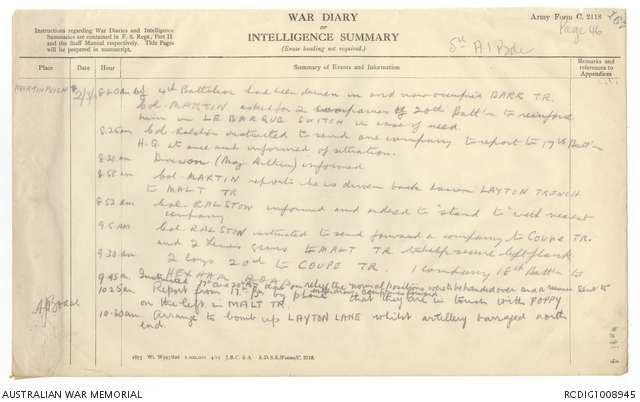 WAR DIARY
or
INTELLIGENCE SUMMARY
(Erase heading not required.)
Army Form C. 2118
Page 46
Instructions regarding War Diaries and Intelligence
Summaries are contained in F. S. Regs., Part II
and the Staff Manual respectively. Title Pages
will be prepared in manuscript.
5th A I Bde
Place
Date
Hour
Summary of Events and Information
Remarks and references to Appendices
MARTINPUICH 8.20am 4th Battalion had been driven in and now occupied BARK TR.
Col. MARTIN asked for 2 companies of 20th Batt'n to reinforce
him in LE BARQUE SWITCH in case of need.
8.25am Col Ralston instructed to send one company to report to 17th Batt'n
H.Q. at once and informed of situation.
Division (Maj. Aitken) informed
8.50 am Col. MARTIN reports he is driven back down LAYTON TRENCH
to MALT TR
8.52 am Col. RALSTON informed and ordered to "stand to" with nearest
company
9.5 am Col. RALSTON instructed to send forward a company to COUPE TR.
and 2 Lewis guns to MALT TR to help secure left flank
9.30 am 2 Coys 20th to COUPE TR. 1 company 18th Battn to
HEXHAM ROAD
9.45am Instructed
10.25am Report from 17th by phone that they are in touch with POPPY
on the left in MALT TR.
10.30am Arrange to bomb up LAYTON LANE whilst artillery barraged north
end.
J.B.C. & A. A.D.S.S./Forms/C. 2118.
AUSTRALIAN WAR MEMORIAL
RCDIG1008945